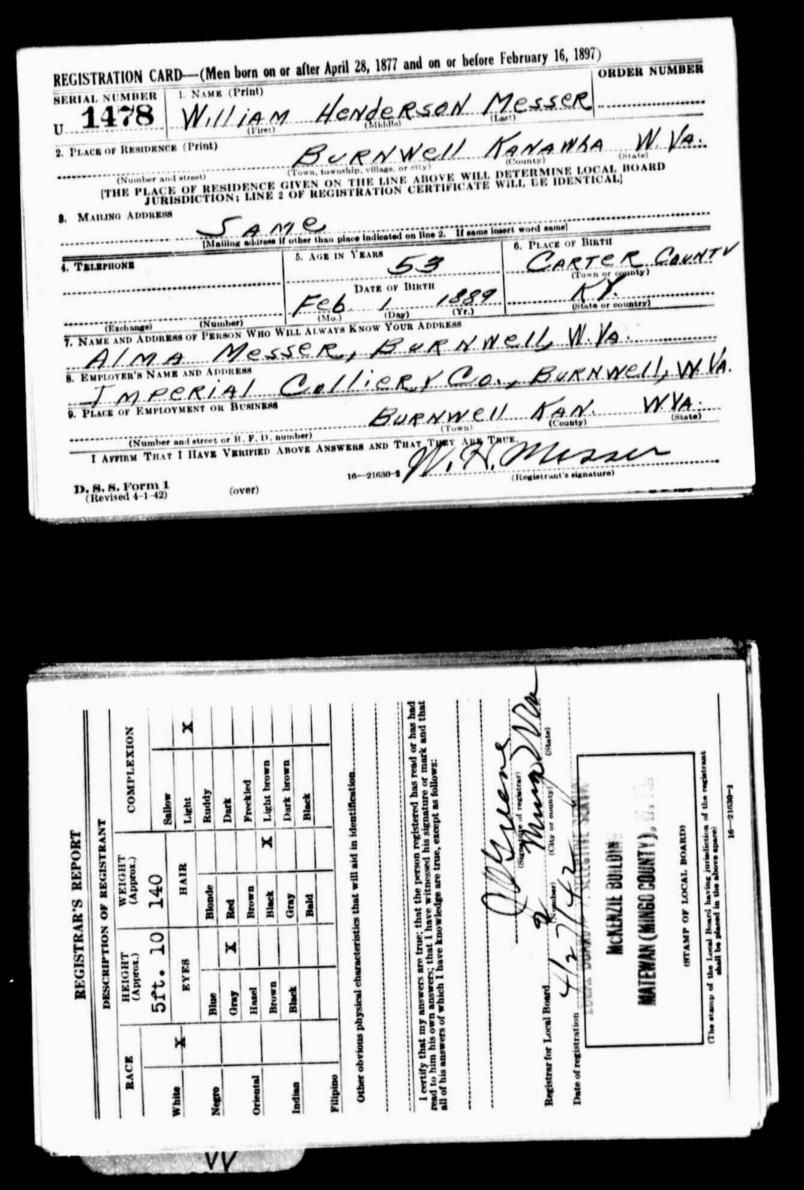 REGISTRATION CARD—(Men born on or after April 28, 1877 and on or before February 16, 1897)
SERIAL NUMBER 1. NAME (Print) ORDER NUMBER
U 1478 WILLIAM HENDERSON MESSER
(First) (Middle) (Last)
2. PLACE OF RESIDENCE (Print)
BURNWELL KANAWHA W. VA.
(Number and street) (Town, township, village, or city) (County) (State)
[THE PLACE OF RESIDENCE GIVEN ON THE LINE ABOVE WILL DETERMINE LOCAL BOARD
JURISDICTION; LINE 2 OF REGISTRATION CERTIFICATE WILL BE IDENTICAL]
3. MAILING ADDRESS
SAME
[Mailing address if other than place indicated on line 2. If same insert word same]
4. TELEPHONE 5. AGE IN YEARS 6. PLACE OF BIRTH
53 CARTER COUNTY
(Town or county)
DATE OF BIRTH
Feb. 1 1889 KY.
(Exchange) (Number) (Mo.) (Day) (Yr.) (State or country)
7. NAME AND ADDRESS OF PERSON WHO WILL ALWAYS KNOW YOUR ADDRESS
ALMA MESSER, BURNWELL, W. VA.
8. EMPLOYER'S NAME AND ADDRESS
IMPERIAL COLLIERY CO., BURNWELL, W. VA.
9. PLACE OF EMPLOYMENT OR BUSINESS
BURNWELL KAN. W VA.
(Number and street or R. F. D. number) (Town) (County) (State)
I AFFIRM THAT I HAVE VERIFIED ABOVE ANSWERS AND THAT THEY ARE TRUE.
W. H. Messer
D. S. S. Form 1 16—21630-2 (Registrant's signature)
(Revised 4-1-42) (over)
REGISTRAR'S REPORT
DESCRIPTION OF REGISTRANT
RACE HEIGHT (Approx.) WEIGHT (Approx.) COMPLEXION
5ft. 10 140
White X
Negro
Oriental
Indian
Filipino
EYES
Blue
Gray X
Hazel
Brown
Black
HAIR
Blonde
Red
Brown
Black X
Gray
Bald
Sallow
Light X
Ruddy
Dark
Freckled
Light brown
Dark brown
Black
Other obvious physical characteristics that will aid in identification
I certify that my answers are true; that the person registered has read or has had
read to him his own answers; that I have witnessed his signature or mark and that
all of his answers of which I have knowledge are true, except as follows:
Greene
(Signature of registrar)
Registrar for Local Board 2 Mingo W Va
(Number) (City or county) (State)
Date of registration 4/27/42
McKENZIE BUILDING
MATEWAN (MINGO COUNTY),
(STAMP OF LOCAL BOARD)
(The stamp of the Local Board having jurisdiction of the registrant
shall be placed in the above space)
16—21630-2